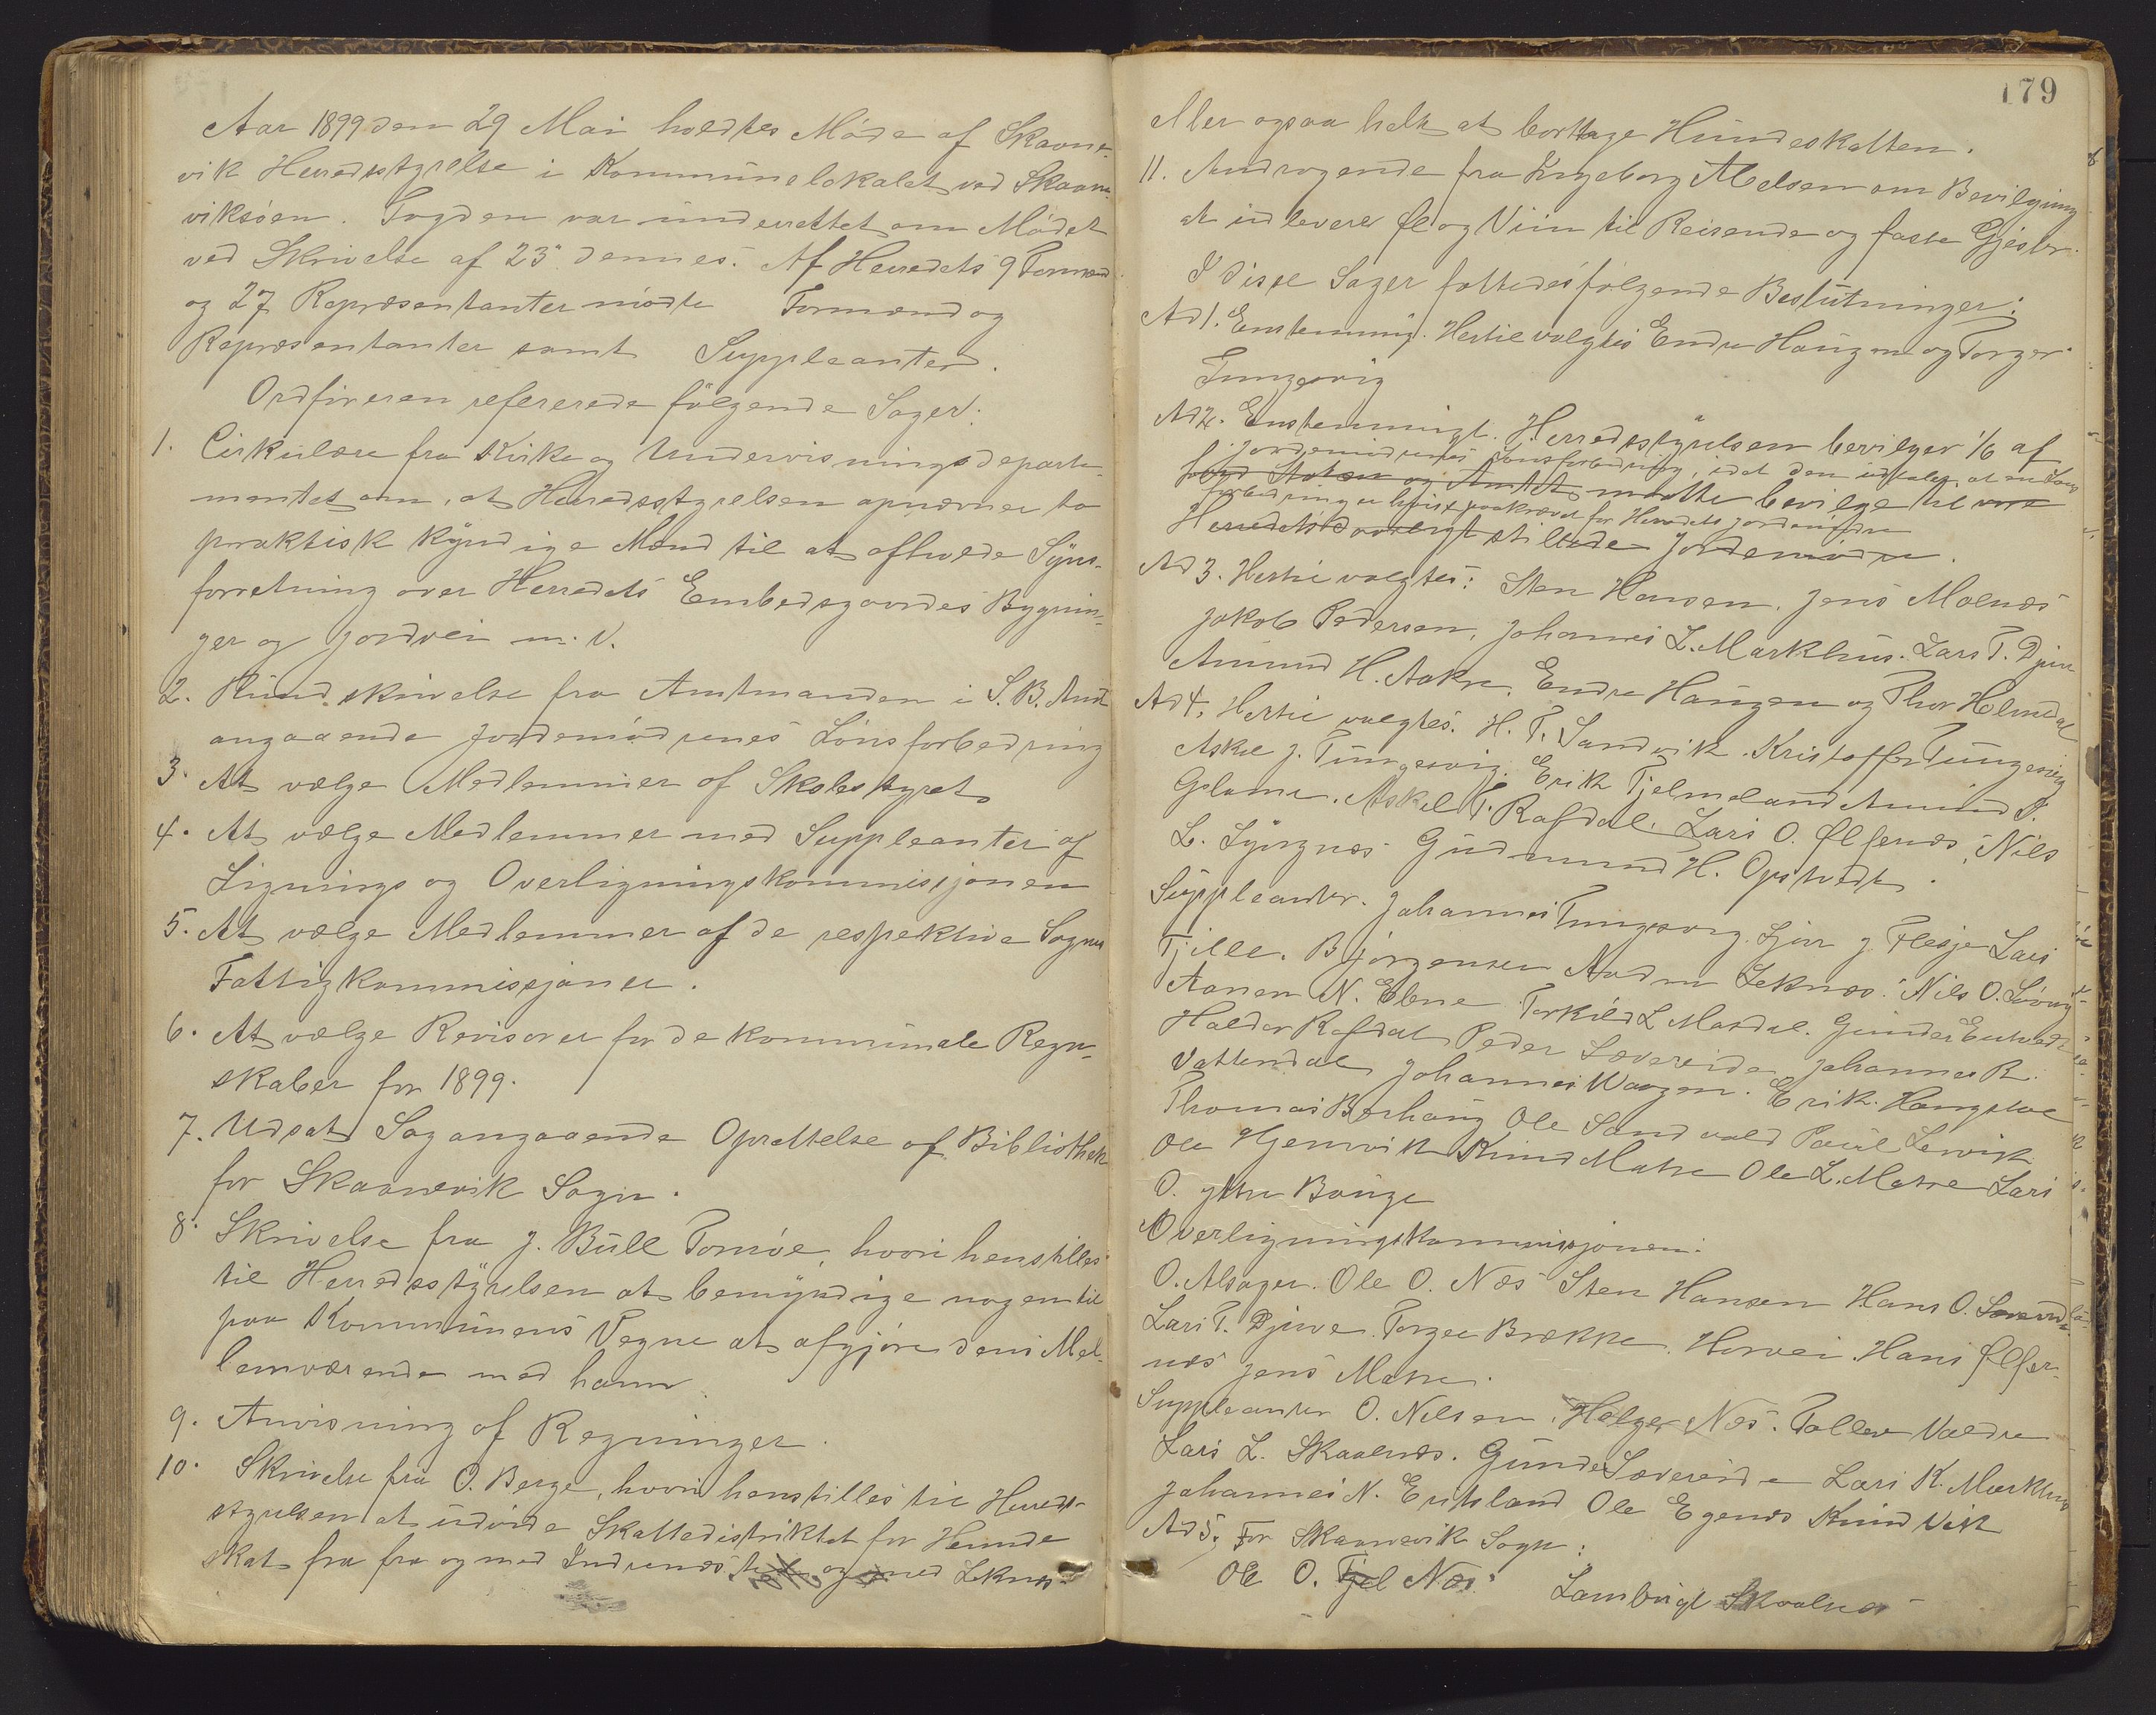 Aar 1899 den 29 Mai holdtes Møde af Skaane-
vik Herredsstyrelse i Kommunelokalet ved Skaane-
viksøen. Fogden var underrettet om Mødet
ved Skrivelse af 23 dennes. Af Herredets 9 Formænd
og 27 Repræsentanter mødte Formænd og
Repræsentanter samt Suppleanter.
Ordføreren refererede følgende Sager:
1. Cirkulære fra Kirke og Undervisningsdeparte-
mentet om, at Herredsstyrelsen opnævner to
praktisk kyndige Mænd til at afholde Syns-
forretning over Herredets Embedsgaardes Bygnin-
ger og Jordvei m. v.
2. Rundskrivelse fra Amtmanden i S. B. Amt
angaaende Jordemødrenes Lønsforbedring
3. At vælge Medlemmer af Skolestyret
4. At vælge Medlemmer med Suppleanter af
Lignings og Overligningskommissjonen
5. At vælge Medlemmer af de respektive Sognes
Fattigkommissjoner.
6. At vælge Revisorer for de kommunale Regn-
skaber for 1899.
7. Udsat Sag angaaende Oprettelse af Bibliothek
for Skaanevik Sogn.
8. Skrivelse fra J. Bull Tornøe, hvori henstilles
til Herredsstyrelsen at bemyndige nogen til
paa Kommunens Vegne at afgjøre dens Mel-
lemværende med ham.
9. Anvisning af Regninger.
10. Skrivelse fra O. Berge, hvori henstilles til Herreds-
styrelsen at udvide Skattedistriktet for Hunde
skat fra fra og med Indrenæs til og med Leknæs
179
eller ogsaa helt at borttage Hundeskatten.
11. Andragende fra Ingeborg Abelsen om Bevilgning
at udlevere Øl og Viin til Reisende og faste Gjester.
I disse Sager fattedes følgende Beslutninger:
Ad 1. Enstemmig. Hertil valgtes Endre Haugen og Torger
Tungesvig
Ad 2. Enstemmigt. Herredsstyrelsen bevilger 1/6 af
Jordemødrenes Lønsforbedring, idet den udtaler, at en Løns
hvad Staten og Amtet maatte bevilge til vore
forbedring er høist paakrævet for Herredets Jordemødre
Herredets daarligt stillede Jordemødre.
Ad 3. Hertil valgtes: Sten Hansen, Jens Molnes
Jakob Pedersen, Johannes L. Markhus. Lars T. Djuve
Amund H. Aakre. Endre Haugen og Thor Helmdal
Ad 4. Hertil valgtes. H. T. Sandvik. Kristoffer Tungesvig
Askil J. Tungesvig. Erik Fjelmeland Amund T.
Askel T. Rafdal. Lars O. Ølfernes, Nils
L. Gudmund H. Opstvedt.
Suppleanter. Johannes Tungesvig. J. Flesje Lars
Bjørgensen Leknæs. Nils O.
Aanen N. Ebne Torkild L Mordal. Gunder
Haldor Rafdal Peder Sævereide Johannes R.
Vattendal Johannes Waagen. Erik
Thomas Borhaug Ole Sandvold Poul Lervik
Ole Hjemvik Knud Matre Ole L. Matre Lars
O. ytre Bauge
Overligningskommissjonen:
O. Alsager. Ole O. Næs Sten Hansen Hans O.
Lars T. Djuve. Torger Brekke. Hans Ølfer-
næs Jens Matre.
Suppleanter O. Nilsen. Helge Næs. Tollev Valdre
Lars L. Skaalnæs. Gunder Sævereide Lars K. Markhus
Johannes N. Ole Egenæs Knud Vik
Ad 5, For Skaanevik Sogn:
Ole O. Næs Lambrigt Skaalnes